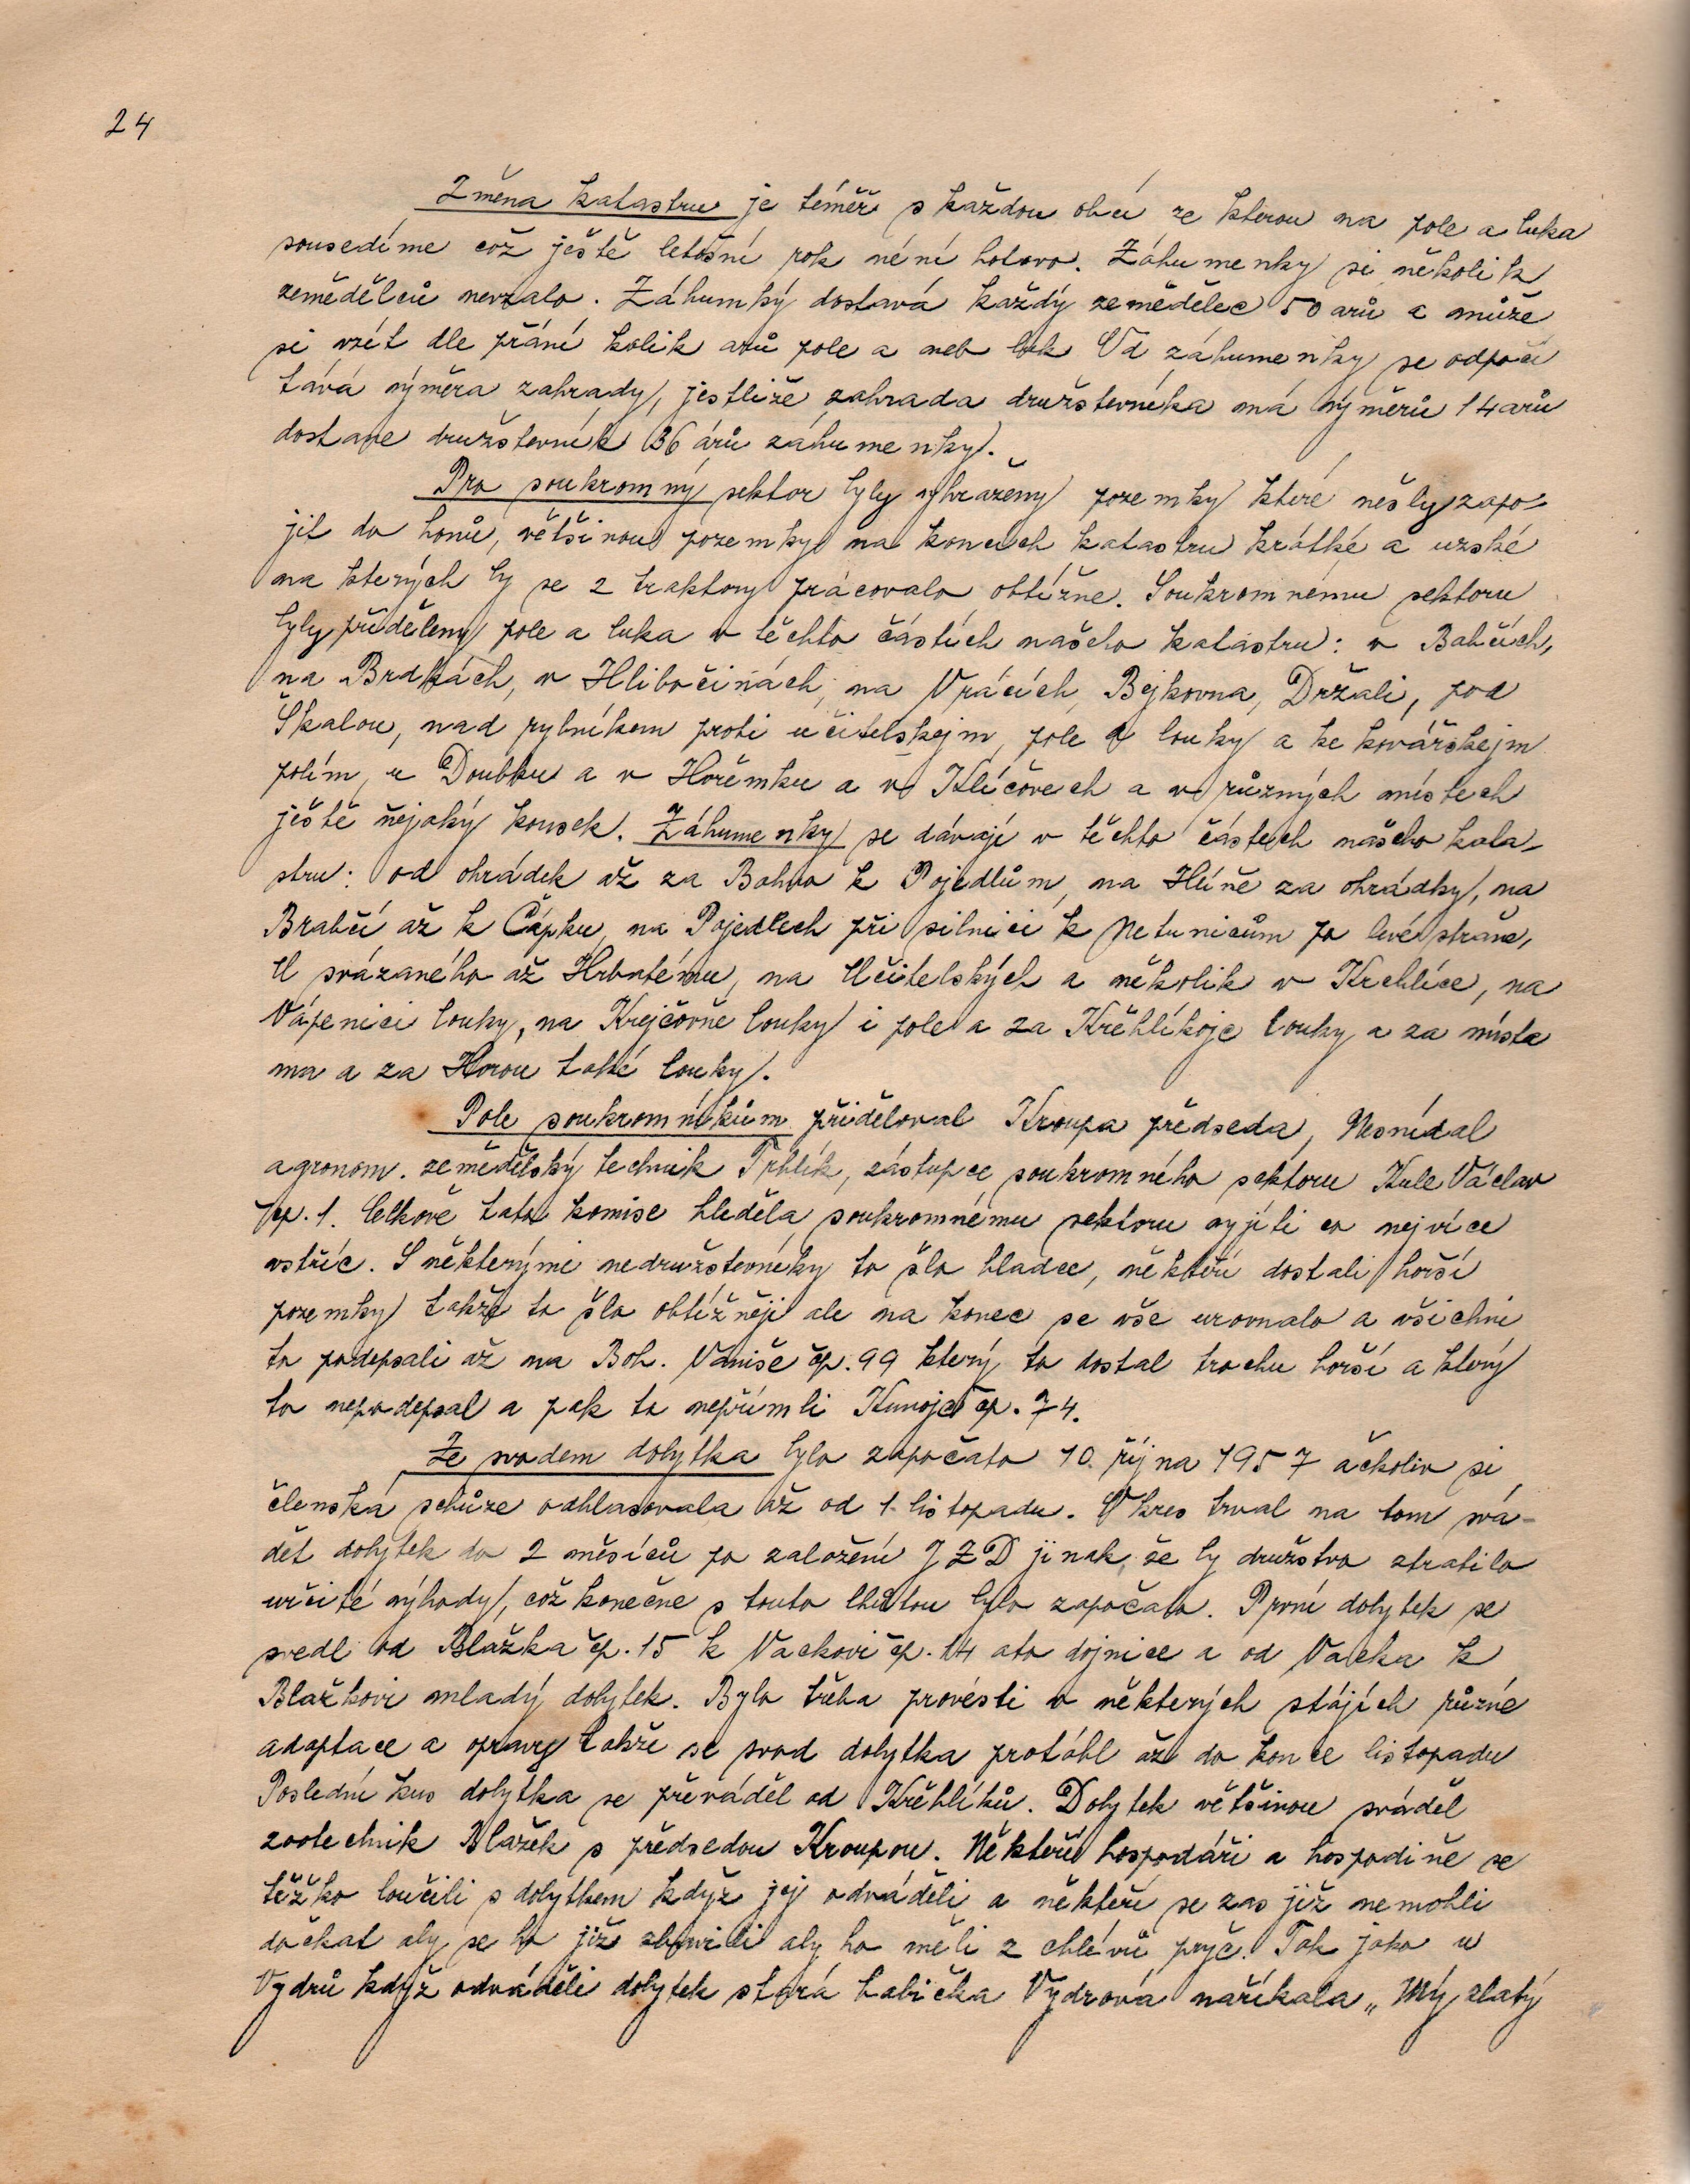 24
Změna katastru je téměř s každou obcí ze kterou na pole a luka
sousedíme což ještě letošní rok není hotovo. Záhumenky si několik
zemědělců nevzalo. Záhumky dostavá každý zemědělec 50 arů a může
si vzít dle přání kolik arů pole a neb luk Od záhumenky se odpočí
tává výměra zahrady, jestliže zahrada družstevníka má výměrů 14 arů
dostane družstevník 36 árů záhumenky.
Pro soukromný sektor byly vyhraženy pozemky které nešly zapo-
jit do honů, většinou pozemky na koncích katastru krátké a uzské
na kterých by se 2 traktory pracovalo obtížne. Soukromnému sektoru
byly přiděleny pole a luka v těchto částích našeho katastru: v Babčích,
na Brdkách, v Hlibočinách, na Vrácích, Bejkovna, Držali, pod
Skalou, nad rybníkem proti učitelskejm, pole a louky a ke kovářskejm
polím, u Doubku a v Hořemku a v Klíčovech a v různých místech
ještě nějaký kousek. Záhumenky se dávají v těchto částech našeho kata-
stru: od ohrádek až za Bahno k Pojedlům, na Hlíně za ohrádky, na
Brabčí až k Čápku, na Pojedlech při silnici k Netunicům po levé straně,
U svázaného až Hrbatému, na Učitelských a několik v Krchlíce, na
Vápenici louky, na Krejčovně louky i pole a za Křéhlíkojc louky a za místa
ma a za Horou také louky.
Pole soukromníkům přiděloval Kroupa předseda, Nesnídal
agronom. zemědělský technik Trhlík, zástupce soukromného sektoru Kule Václav
čp. 1. Celkově tato komise hleděla soukromnému sektoru vyjíti co nejvíce
vstříc. S některými nedružstevníky to šlo hladce, někteří dostali horší
pozemky takže to šlo obtížněji ale na konec se vše urovnalo a všichni
to podepsali až na Boh. Vaniše čp. 99 který to dostal trochu horší a který
to nepodepsal a pak to nepřímli Kunojc čp. 74.
Ze svodem dobytka bylo započato 10. října 1957 ačkoliv si
členská schůze odhlasovala až od 1. listopadu. Okres trval na tom svá-
dět dobytek do 2 měsíců po založení JZD jinak, že by družstvo ztratilo
určité výhody, což konečne s touto lhůtou bylo započato. První dobytek se
svedl od Blažka čp. 15 k Vackovi čp. 14 ato dojnice a od Vacka k
Blažkovi mladý dobytek. Bylo třeba provésti v některých stájích různé
adaptace a opravy takže se svod dobytka protáhl až do konce listopadu
Poslední kus dobytka se převáděl od Křéhlíků. Dobytek většinou sváděl
zootechnik Blažek s předsedou Kroupou. Někteří hospodáři a hospodině se
těžko loučili s dobytkem když jej odváděli a někteří se zas již nemohli
dočkat aby se ho již zbavili aby ho měli z chlévů pryč. Tak jako u
Vydrů když odváděli dobytek stará babička Vydrová naříkala „Mý zlatý